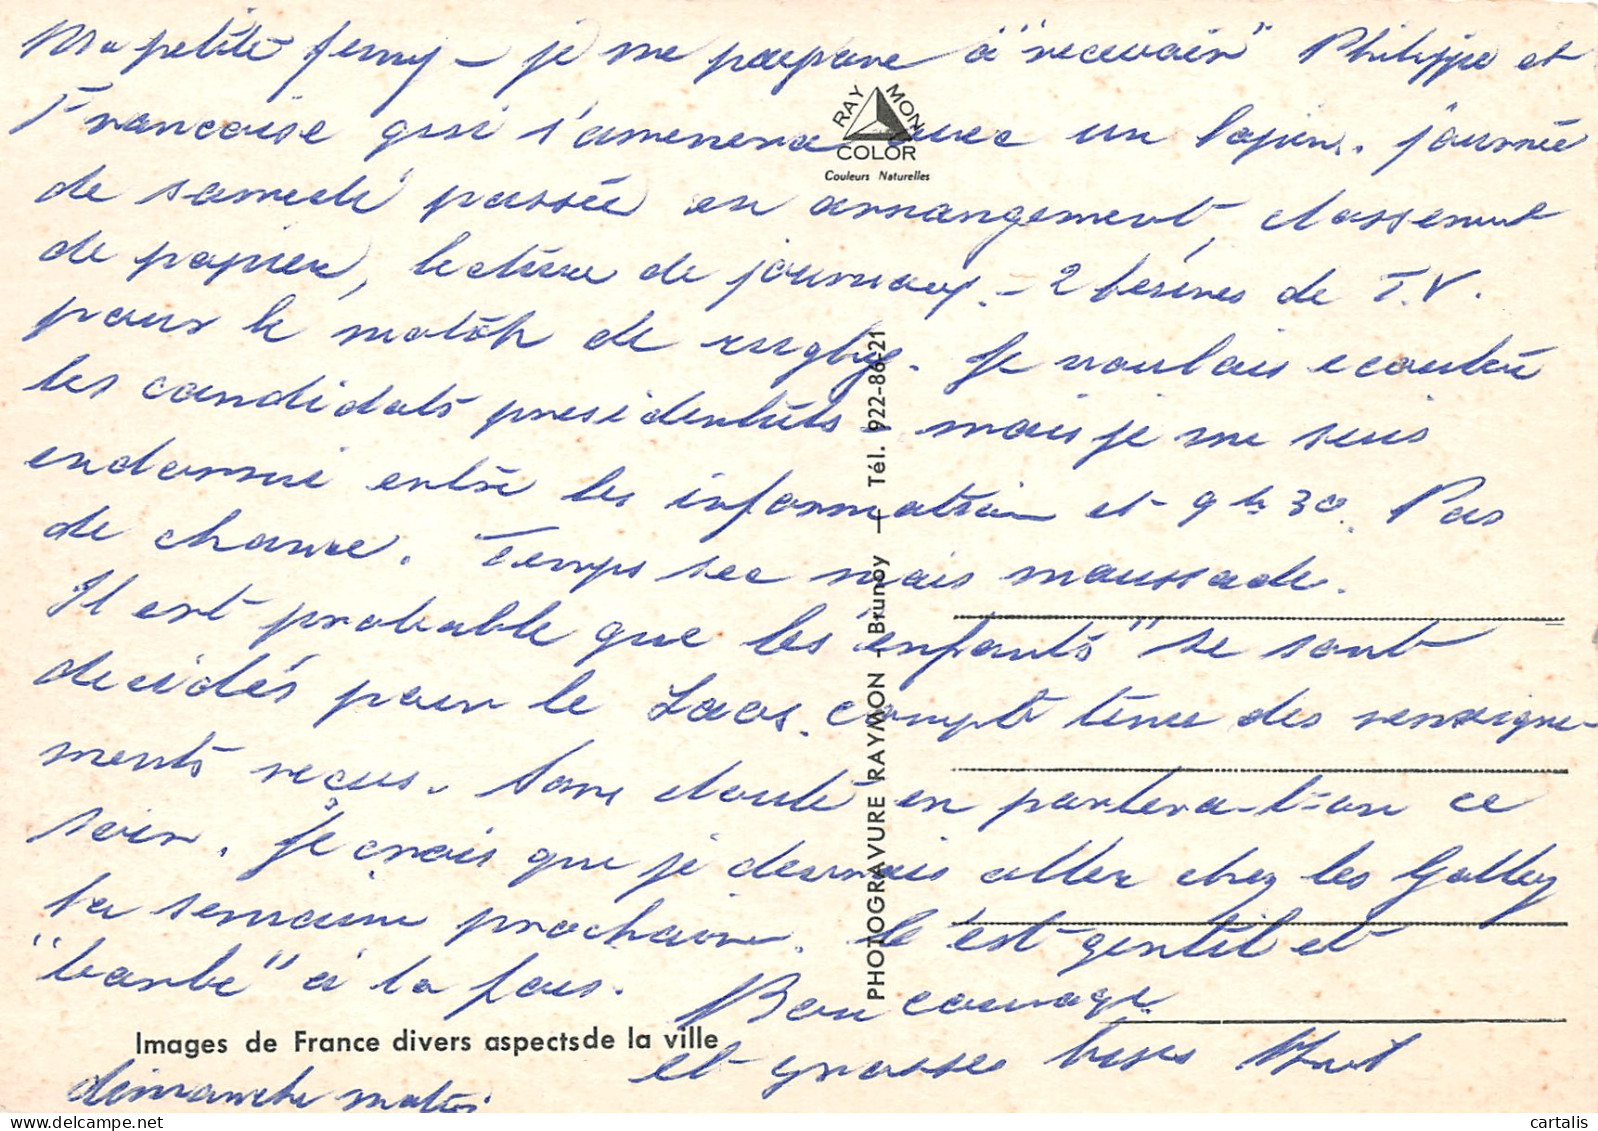 Ma petite Jenny – je me prépare à "recevoir" Philippe et
Francoise qui s'amenera avec un lapin. journée
de samedi passée en arrangement, classement
de papier, lecture de journaux. – 2 heures de T.V.
pour le match de rugby. Je voulais ecouter
les candidats presidentiels mais je me suis
endormi entre les information et 9h30. Pas
de chance. Temps sec mais maussade.
Il est probable que les "enfants" se sont
decidés pour le Laos. compte tenu des renseigne-
ments recus. Sans doute en parlera-t-on ce
soir. Je crois que je devrais aller chez les Galley
la semaine prochaine. C'est gentil et
"barbe" à la fois. Bon courage
et grosses bises
dimanche matin
RAYMON
COLOR
Couleurs Naturelles
PHOTOGRAVURE RAYMON - Brunoy — Tél. 922-86-21
Images de France divers aspectsde la ville
cartalis